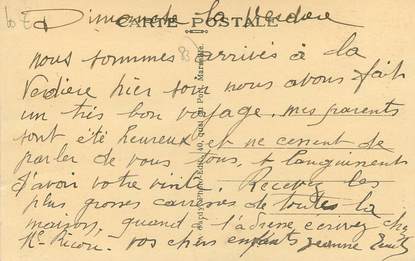 Dimanche La Verdière
CARTE POSTALE
nous sommes arrivés à la
Verdière hier soir nous avons fait
un très bon voyage. mes parents
sont été heureux et ne cessent de
parler de vous tous, et languissent
d'avoir votre visite. Recevez les
plus grosses caresses de toutes la
maison, quand à l'adresse écrivez chez
Mr Ricou. vos chers enfants Jeanne